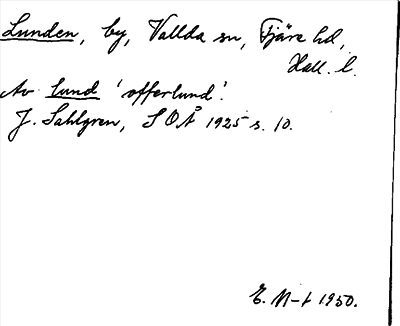 Lunden, by, Vallda sn, Fjäre hd,
Hall. l.
Av lund 'offerlund'.
J. Sahlgren, SOÅ 1925 s. 10.
E. N-t 1950.